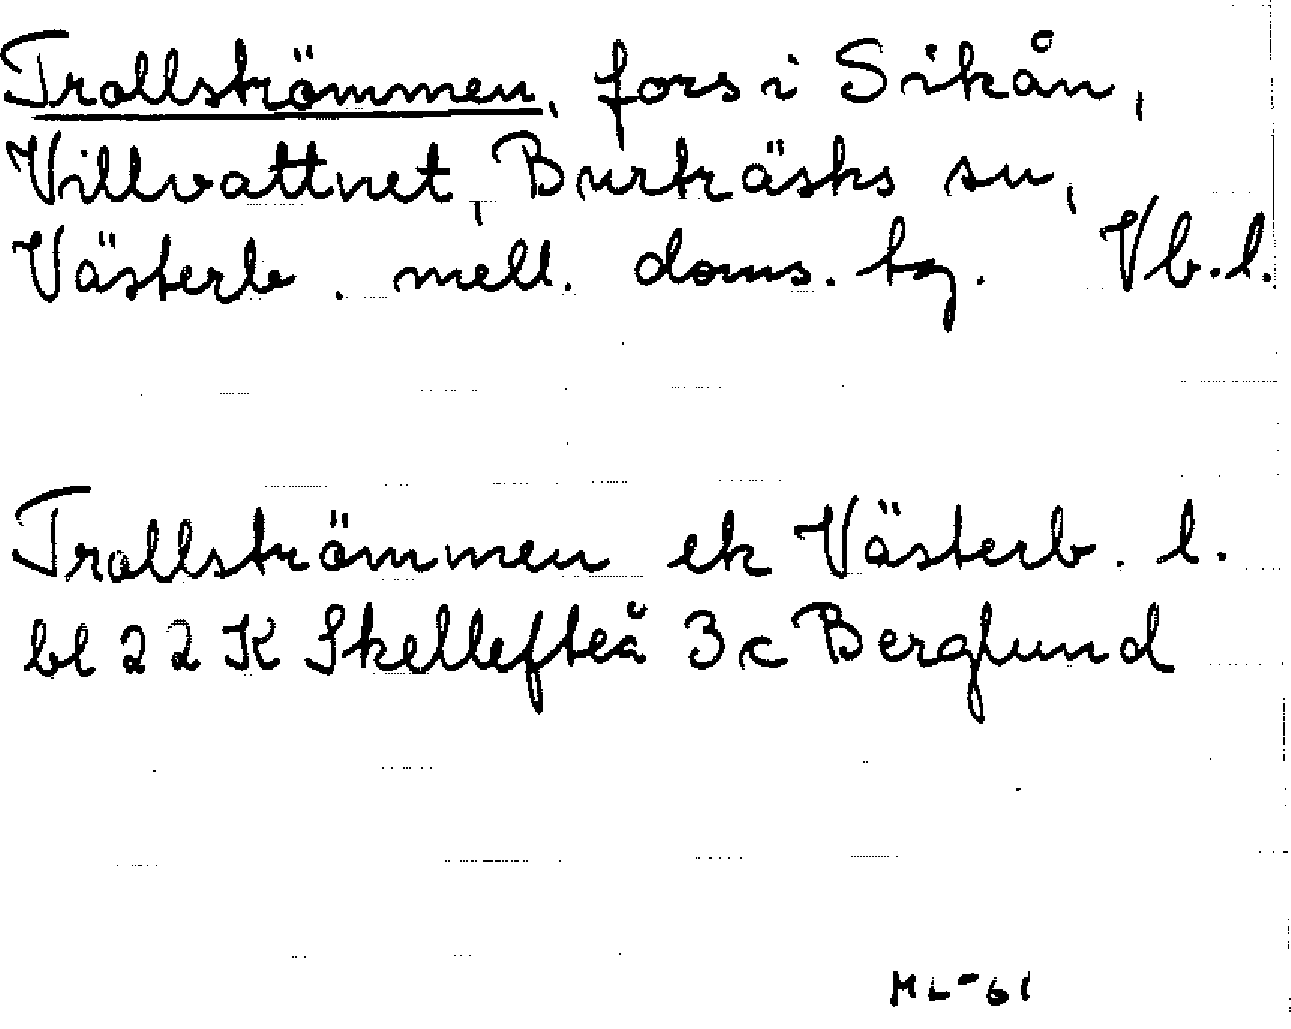 Trollströmmen, fors i Sikån,
Villvattnet, Burträsks sn,
Västerb. mell. doms. tg. Vb.l.
Trollströmmen ek Västerb. l.
bl 22 K Skellefteå 3c Berglund
ML-61